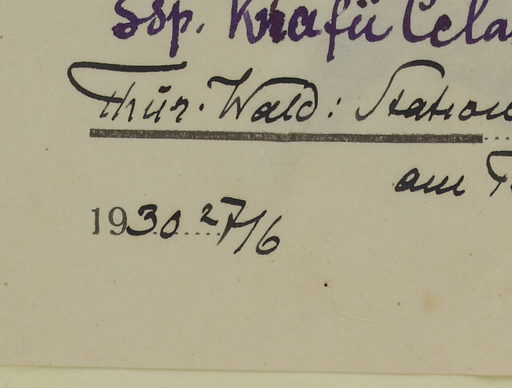 Ssp. Knafii Čela
Thür. Wald: Station
am
1930 27/6